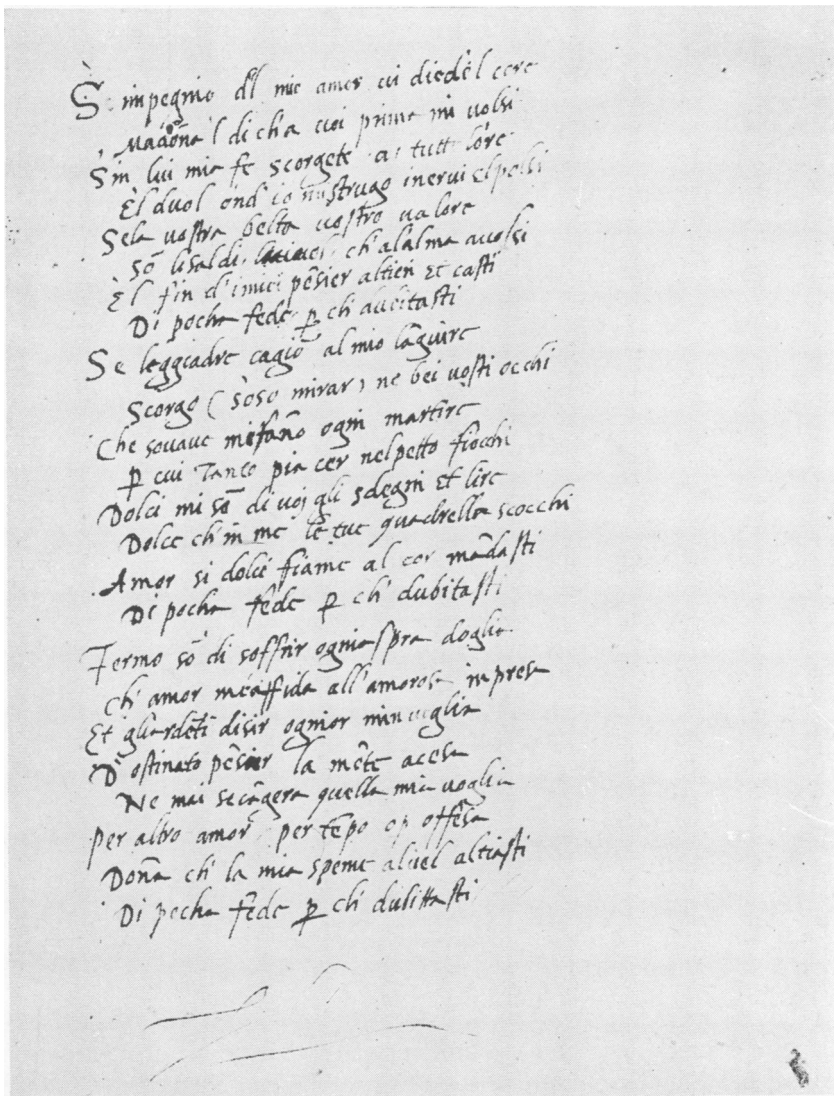 Se impegnio dl mio amor vi diedel core
Madõna l di cha voi prima mi volsi
Sin lui mia fe scorgete a tutt lore
El duol ond io mi strugo inervi el polsi
Sela vostra belta vostro valore
Sõ li saldi ch alalma avolsi
El fin d imiei pẽsier altieri et casti
Di pocha fede p chi dubitasti
Se leggiadre cagiõ al mio lãguire
Scorgo (sõso mirar) ne bei vostri occhi
Che sovave mi fano ogni martire
p cui Tanto pia cer nel petto fiocchi
Dolci mi sõ di voj gli sdegni et lire
Dolce ch in me le tue quadrella scocchi
Amor si dolci fiame al cor mãdasti
Di pocha fede p chi dubitasti
Fermo sõ di soffrir ogni aspra doglia
Ch amor m affida all amorosa impresa
Et gli ardẽti disir ognior m invoglia
D ostinato pẽsier la mẽte acesa
Ne mai se cãgera quella mia voglia
per altro amor per tẽpo o offesa
Dona chi la mia speme al ciel altiasti
Di pocha fede p chi dubitasti